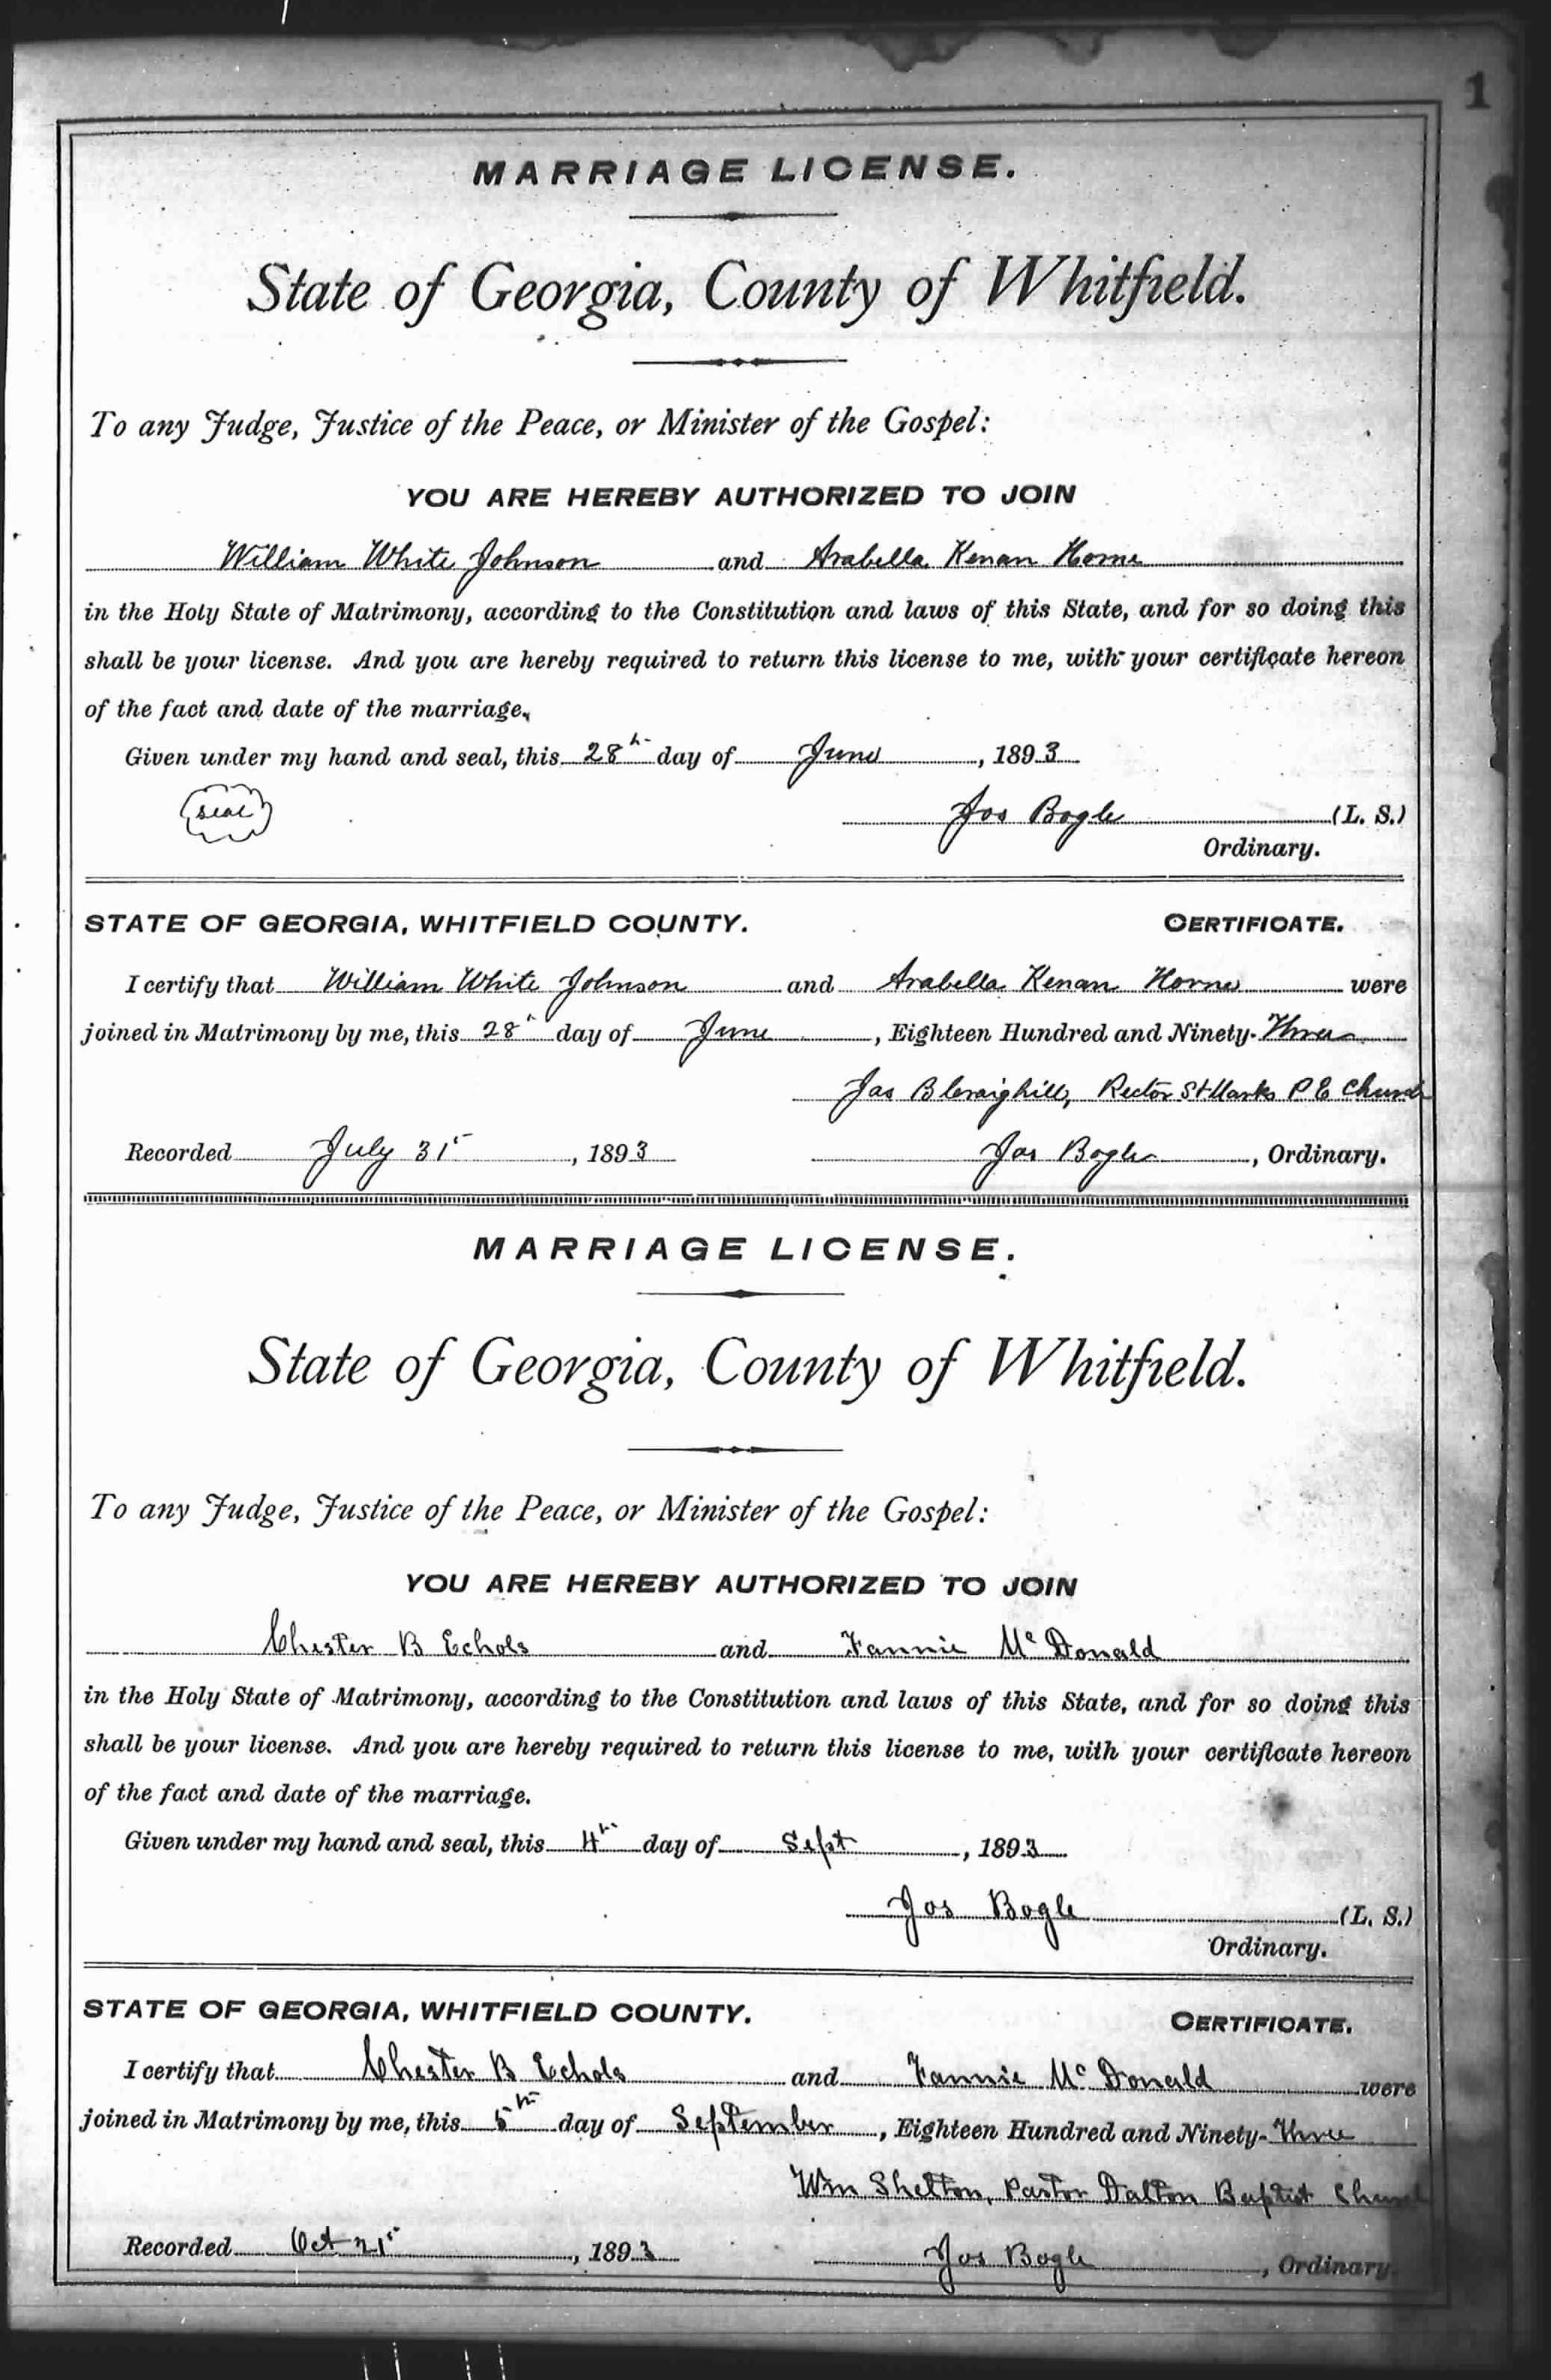 1
MARRIAGE LICENSE.
State of Georgia, County of Whitfield.
To any Judge, Justice of the Peace, or Minister of the Gospel:
YOU ARE HEREBY AUTHORIZED TO JOIN
William White Johnson and Arabella Kenan Horne
in the Holy State of Matrimony, according to the Constitution and laws of this State, and for so doing this
shall be your license. And you are hereby required to return this license to me, with your certificate hereon
of the fact and date of the marriage.
Given under my hand and seal, this 28th day of June, 1893
(seal) Jos Bogle (L. S.)
Ordinary.
STATE OF GEORGIA, WHITFIELD COUNTY. CERTIFICATE.
I certify that William White Johnson and Arabella Kenan Horne were
joined in Matrimony by me, this 28th day of June, Eighteen Hundred and Ninety-Three
Jas B Craighill, Rector St Marks P E Church
Recorded July 31st, 1893 Jos Bogle, Ordinary.
MARRIAGE LICENSE.
State of Georgia, County of Whitfield.
To any Judge, Justice of the Peace, or Minister of the Gospel:
YOU ARE HEREBY AUTHORIZED TO JOIN
Chester B Echols and Fannie McDonald
in the Holy State of Matrimony, according to the Constitution and laws of this State, and for so doing this
shall be your license. And you are hereby required to return this license to me, with your certificate hereon
of the fact and date of the marriage.
Given under my hand and seal, this 4th day of Sept, 1893
Jos Bogle (L. S.)
Ordinary.
STATE OF GEORGIA, WHITFIELD COUNTY. CERTIFICATE.
I certify that Chester B Echols and Fannie McDonald were
joined in Matrimony by me, this 5th day of September, Eighteen Hundred and Ninety-Three
Wm Shelton, Pastor Dalton Baptist Church
Recorded Oct 21st, 1893 Jos Bogle, Ordinary.